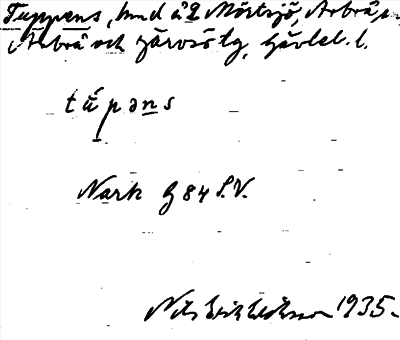 Tuppens, hmd å 2 Mörtsjö, Arbrå sn
Arbrå och Järvsö tg, Gävleb. l.
tú̠pəns
Nark G 84 S.V.
Nils Erik Eriksson 1935.